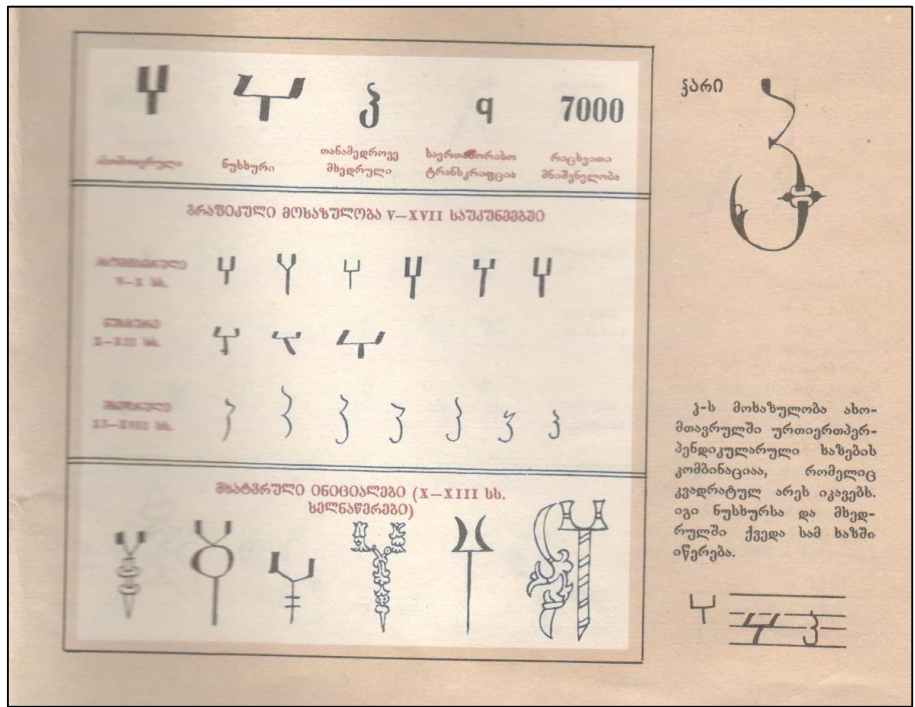 Ⴤ ⴤ ჴ q 7000
ასომთავრული ნუსხური თანამედროვე მხედრული საერთაშორისო ტრანსკრიფცია რიცხვითი მნიშვნელობა
გრაფიკული მოხაზულობა V—XVII საუკუნეებში
ასომთავრული
V—X სს.
ნუსხური
X—XIII სს.
მხედრული
XI—XVIII სს.
მხატვრული ინიციალები (X—XIII სს.
ხელნაწერები)
ჴარი
ჴ-ს მოხაზულობა ასო-
მთავრულში ურთიერთპერ-
პენდიკულარული ხაზების
კომბინაციაა, რომელიც
კვადრატულ არეს იკავებს.
იგი ნუსხურსა და მხედ-
რულში ქვედა სამ ხაზში
იწერება.